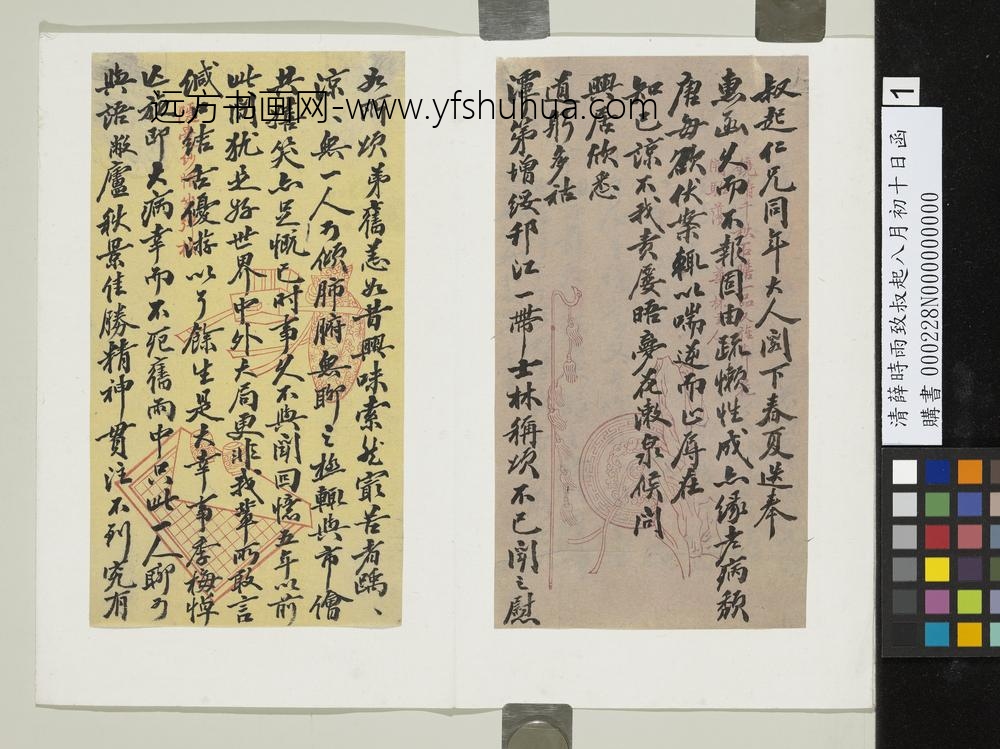 叔起仁兄同年大人閣下春夏迭奉
惠函久而不報固由疏懶性成亦緣老病頹
唐每欲伏案輒以喘逆而止辱在
知己諒不我責屢晤夢花漱泉候問
興居欣悉
道躬多祜
潭第增綏邗江一帶士林稱頌不已聞之慰
頌弟舊恙如昔興味索然寂苦者踽、
涼、無一人可傾肺腑無聊之極輒與市儈
共權笑亦足慨已時事久不與聞回憶五年以前
此猶是好世界中外大局更非我輩所敢言
緘口結舌優游以了餘生是大幸事季梅悼
亡旋即大病幸而不死舊雨中只此一人聊可
與語敝廬秋景佳勝精神貫注不到究有
远方书画网-www.yfshuhua.com
1
清薛時雨致叔起八月初十日函
購書 000228N000000000